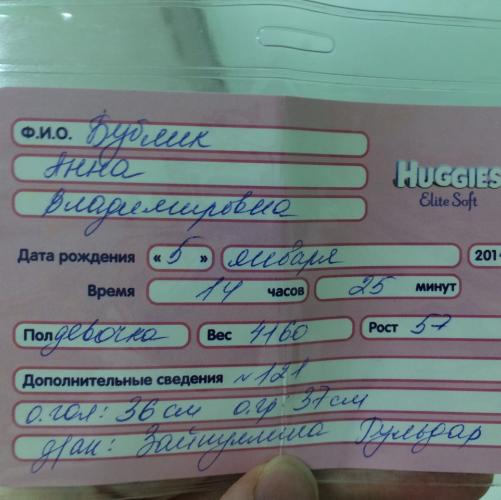 Ф.И.О. Бублик
Анна
Владимировна
HUGGIES
Elite Soft
Дата рождения « 5 » января 201
Время 14 часов 25 минут
Пол девочка Вес 4160 Рост 57
Дополнительные сведения №121
о.гол: 36 см о.гр 37 см
д/ак: Зайнуллина Гульдар